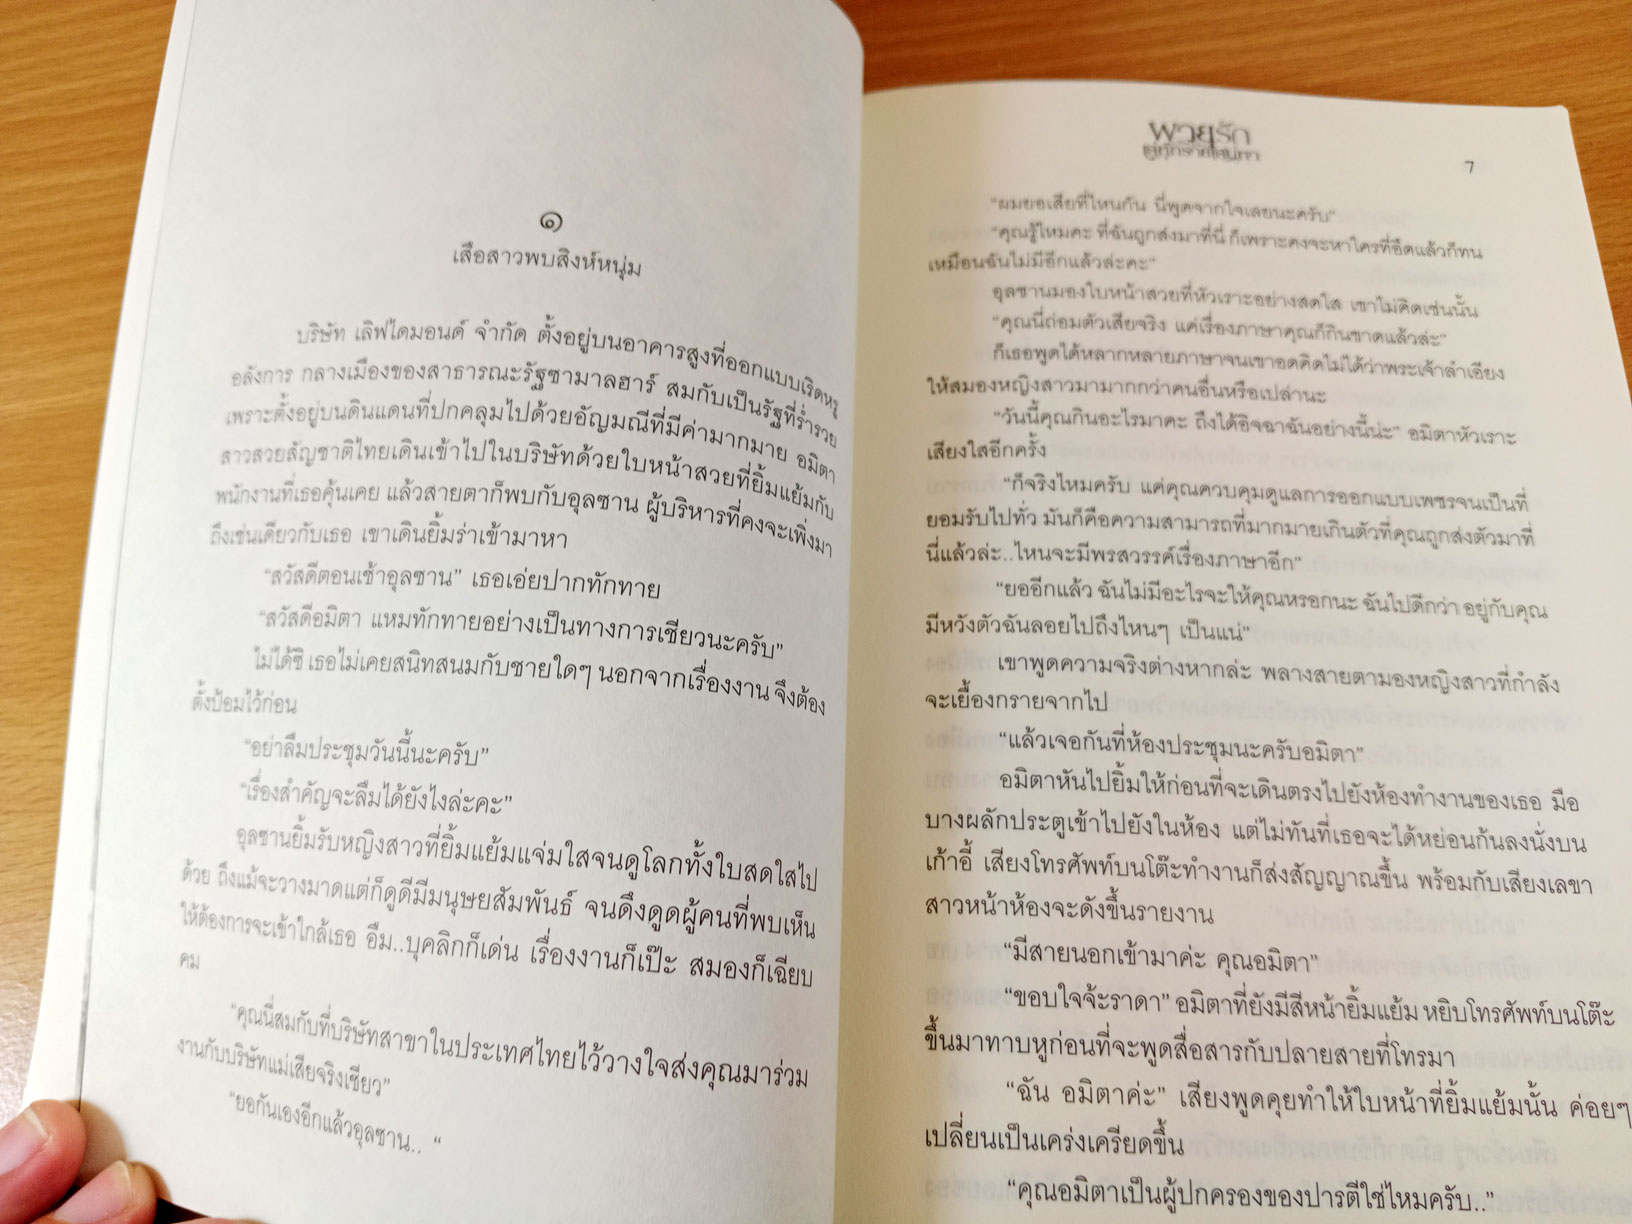 ๑
เสือสาวพบสิงห์หนุ่ม
บริษัท เลิฟไดมอนด์ จำกัด ตั้งอยู่บนอาคารสูงที่ออกแบบเริดหรู
อลังการ กลางเมืองของสาธารณะรัฐซามาลฮาร์ สมกับเป็นรัฐที่ร่ำรวย
เพราะตั้งอยู่บนดินแดนที่ปกคลุมไปด้วยอัญมณีที่มีค่ามากมาย อมิตา
สาวสวยสัญชาติไทยเดินเข้าไปในบริษัทด้วยใบหน้าสวยที่ยิ้มแย้มกับ
พนักงานที่เธอคุ้นเคย แล้วสายตาก็พบกับอุลซาน ผู้บริหารที่คงจะเพิ่งมา
ถึงเช่นเดียวกับเธอ เขาเดินยิ้มร่าเข้ามาหา
“สวัสดีตอนเช้าอุลซาน” เธอเอ่ยปากทักทาย
“สวัสดีอมิตา แหมทักทายอย่างเป็นทางการเชียวนะครับ”
ไม่ได้ซิ เธอไม่เคยสนิทสนมกับชายใดๆ นอกจากเรื่องงาน จึงต้อง
ตั้งป้อมไว้ก่อน
“อย่าลืมประชุมวันนี้นะครับ”
“เรื่องสำคัญจะลืมได้ยังไงล่ะคะ”
อุลซานยิ้มรับหญิงสาวที่ยิ้มแย้มแจ่มใสจนดูโลกทั้งใบสดใสไป
ด้วย ถึงแม้จะวางมาดแต่ก็ดูดีมีมนุษยสัมพันธ์ จนดึงดูดผู้คนที่พบเห็น
ให้ต้องการจะเข้าใกล้เธอ อืม..บุคลิกก็เด่น เรื่องงานก็เป๊ะ สมองก็เฉียบ
คม
“คุณนี่สมกับที่บริษัทสาขาในประเทศไทยไว้วางใจส่งคุณมาร่วม
งานกับบริษัทแม่เสียจริงเชียว”
“ยอกันเองอีกแล้วอุลซาน.. “
พวยรัก
7
“ผมยอเสียที่ไหนกัน นี่พูดจากใจเลยนะครับ”
“คุณรู้ไหมคะ ที่ฉันถูกส่งมาที่นี่ ก็เพราะคงจะหาใครที่อึดแล้วก็ทน
เหมือนฉันไม่มีอีกแล้วล่ะคะ“
อุลซานมองใบหน้าสวยที่หัวเราะอย่างสดใส เขาไม่คิดเช่นนั้น
“คุณนี่ถ่อมตัวเสียจริง แค่เรื่องภาษาคุณก็กินขาดแล้วล่ะ”
ก็เธอพูดได้หลากหลายภาษาจนเขาอดคิดไม่ได้ว่าพระเจ้าลำเอียง
ให้สมองหญิงสาวมามากกว่าคนอื่นหรือเปล่านะ
“วันนี้คุณกินอะไรมาคะ ถึงได้อิจฉาฉันอย่างนี้น่ะ” อมิตาหัวเราะ
เสียงใสอีกครั้ง
“ก็จริงไหมครับ แค่คุณควบคุมดูแลการออกแบบเพชรจนเป็นที่
ยอมรับไปทั่ว มันก็คือความสามารถที่มากมายเกินตัวที่คุณถูกส่งตัวมาที่
นี่แล้วล่ะ..ไหนจะมีพรสวรรค์เรื่องภาษาอีก”
“ยออีกแล้ว ฉันไม่มีอะไรจะให้คุณหรอกนะ ฉันไปดีกว่า อยู่กับคุณ
มีหวังตัวฉันลอยไปถึงไหนๆ เป็นแน่”
เขาพูดความจริงต่างหากล่ะ พลางสายตามองหญิงสาวที่กำลัง
จะเยื้องกรายจากไป
“แล้วเจอกันที่ห้องประชุมนะครับอมิตา”
อมิตาหันไปยิ้มให้ก่อนที่จะเดินตรงไปยังห้องทำงานของเธอ มือ
บางผลักประตูเข้าไปยังในห้อง แต่ไม่ทันที่เธอจะได้หย่อนก้นลงนั่งบน
เก้าอี้ เสียงโทรศัพท์บนโต๊ะทำงานก็ส่งสัญญาณขึ้น พร้อมกับเสียงเลขา
สาวหน้าห้องจะดังขึ้นรายงาน
“มีสายนอกเข้ามาค่ะ คุณอมิตา”
“ขอบใจจ้ะราดา” อมิตาที่ยังมีสีหน้ายิ้มแย้ม หยิบโทรศัพท์บนโต๊ะ
ขึ้นมาทาบหูก่อนที่จะพูดสื่อสารกับปลายสายที่โทรมา
“ฉัน อมิตาค่ะ” เสียงพูดคุยทำให้ใบหน้าที่ยิ้มแย้มนั้น ค่อยๆ
เปลี่ยนเป็นเคร่งเครียดขึ้น
“คุณอมิตาเป็นผู้ปกครองของปารตีใช่ไหมครับ..”